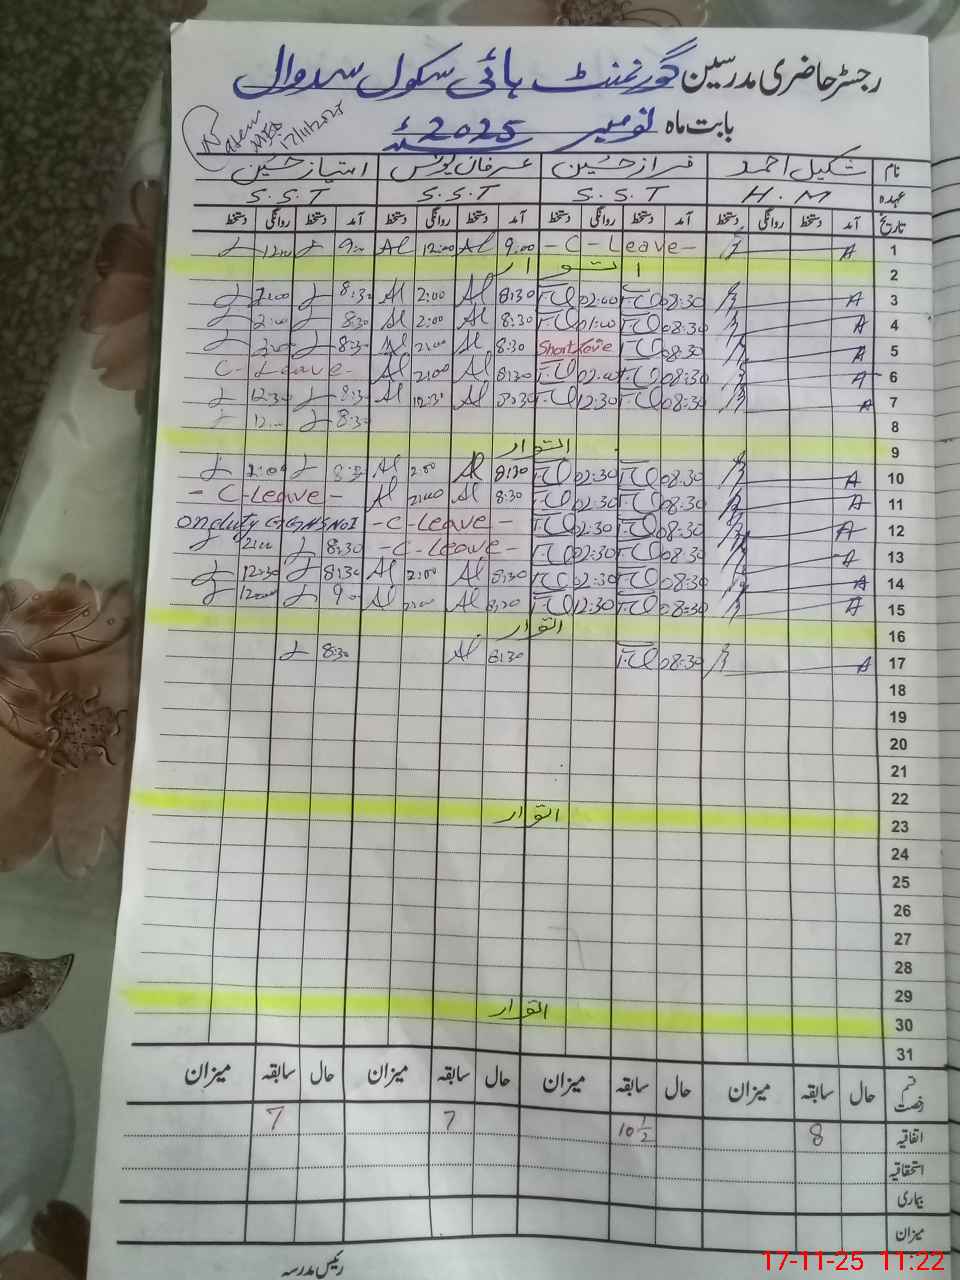 رجسٹر حاضری مدرسین گورنمنٹ ہائی سکول سدوال
بابت ماہ نومبر 2025ء
Naeem
MEO
17/11/2025
نام شکیل احمد فراز حسین عرفان یونس امتیاز حسین
عہدہ H.M S.S.T S.S.T S.S.T
تاریخ آمد دستخط روانگی دستخط آمد دستخط روانگی دستخط آمد دستخط روانگی دستخط آمد دستخط روانگی دستخط
1 A - C - Leave - 9:00 Al 12:00 Al 9:00 12:00
2 اتوار
3 A 08:30 02:00 8:30 Al 2:00 Al 8:30 2:00
4 A 08:30 01:00 8:30 Al 2:00 Al 8:30 2:00
5 A 08:30 Short Leave 8:30 Al 2:00 Al 8:30 2:00
6 A 08:30 02:00 8:30 Al 2:00 Al C - Leave -
7 A 08:30 12:30 8:30 Al 12:30 Al 8:30 12:30
8 8:30
9 اتوار
10 A 08:30 02:30 8:30 Al 2:00 Al 8:30 2:00
11 A 08:30 02:30 8:30 Al 2:00 Al - C - Leave -
12 A 08:30 02:30 - C - Leave - on duty GGHS No1
13 A 08:30 02:30 - C - Leave - 8:30 2:00
14 A 08:30 02:30 8:30 Al 2:00 Al 8:30 12:30
15 A 08:30 12:30 8:30 Al 2:00 Al 9:00 12:00
16 اتوار
17 A 08:30 8:30 Al 8:30
18
19
20
21
22
23 اتوار
24
25
26
27
28
29
30 اتوار
31
قسم رخصت حال سابقہ میزان حال سابقہ میزان حال سابقہ میزان حال سابقہ میزان
اتفاقیہ 8 10 1/2 7 7
استحقاقیہ
بیماری
میزان
رئیس مدرسہ
17-11-25 11:22